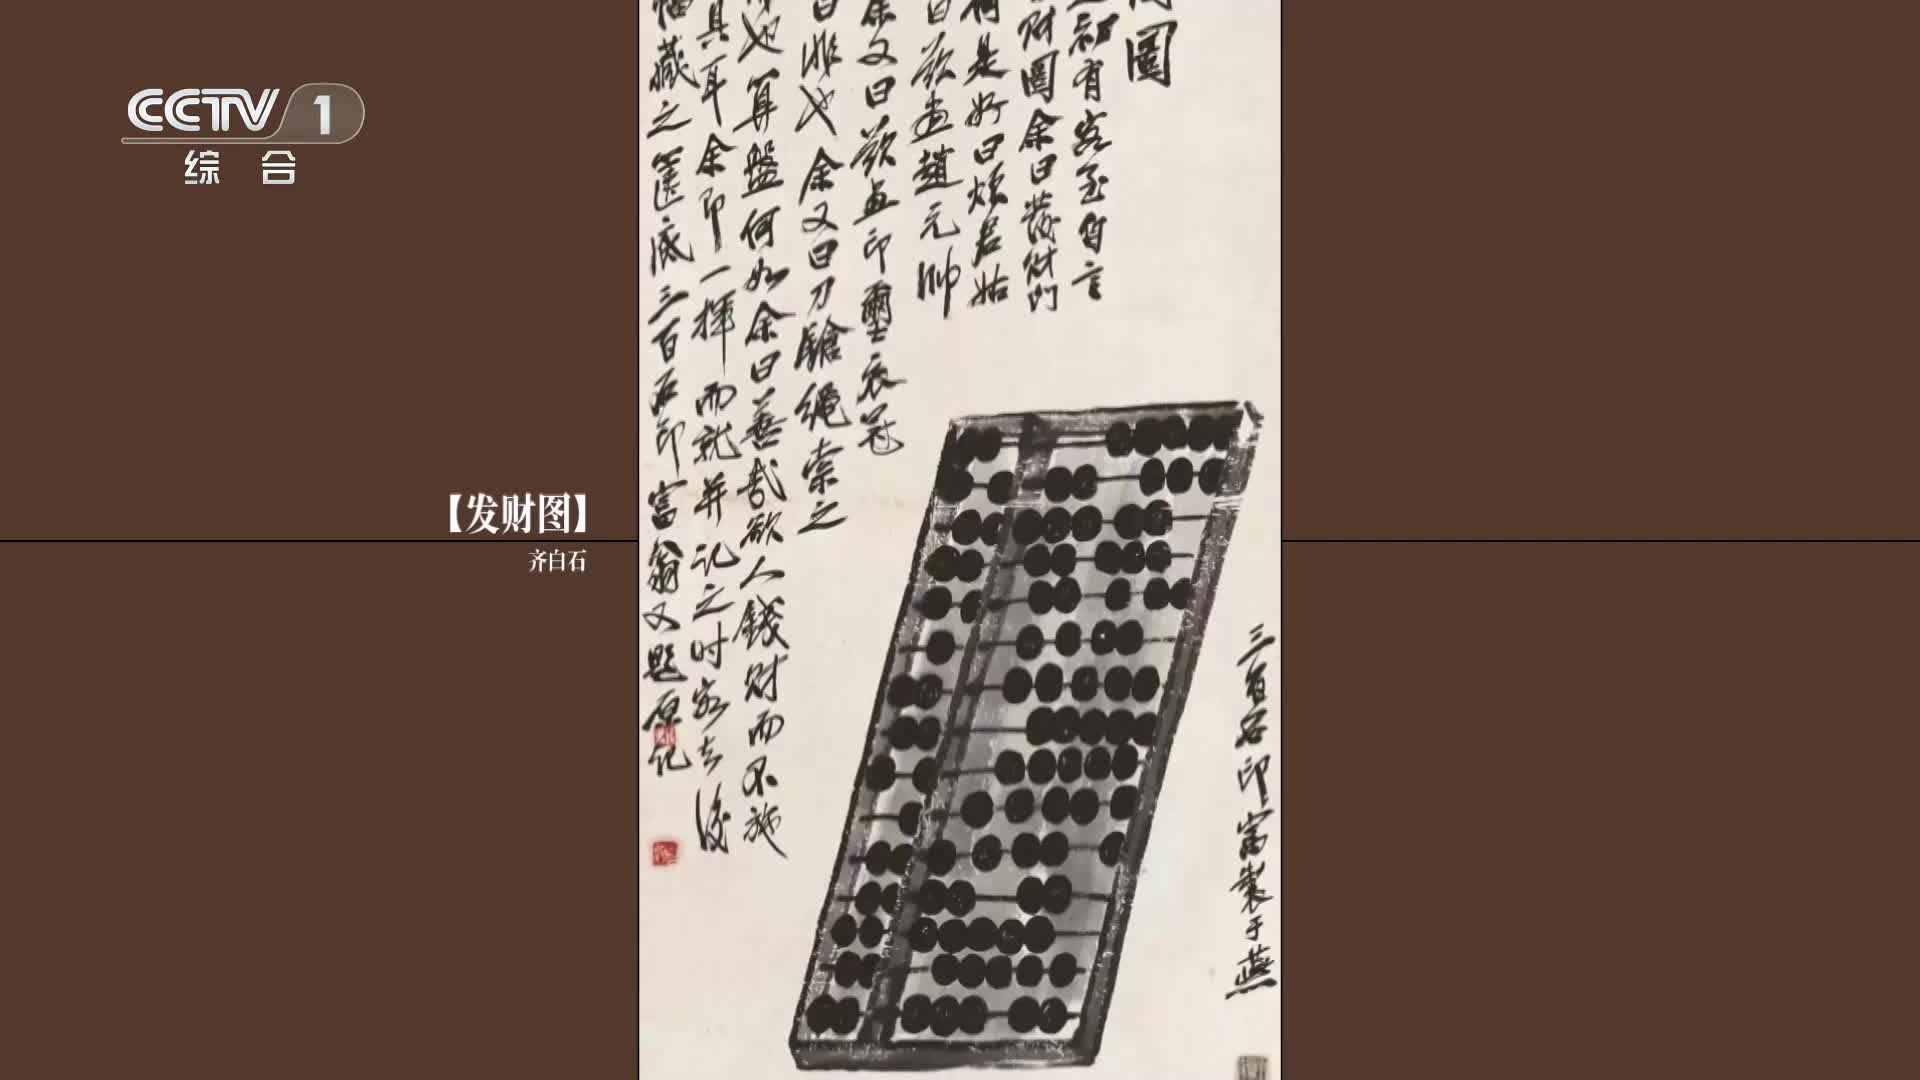 CCTV 1
综 合
【发财图】
齐白石
圖
初有客至自言
財圖余曰發財門
何是好曰煩君姑
曰欲畫趙元帥
余又曰欲畫印璽衣冠
曰非也余又曰刀鎗繩索之
也算盤何如余曰善哉欲人錢財而不施
具耳余即一揮而就并记之时客去後
幅藏之篋底三百石印富翁又題原记
三百石印富製于燕